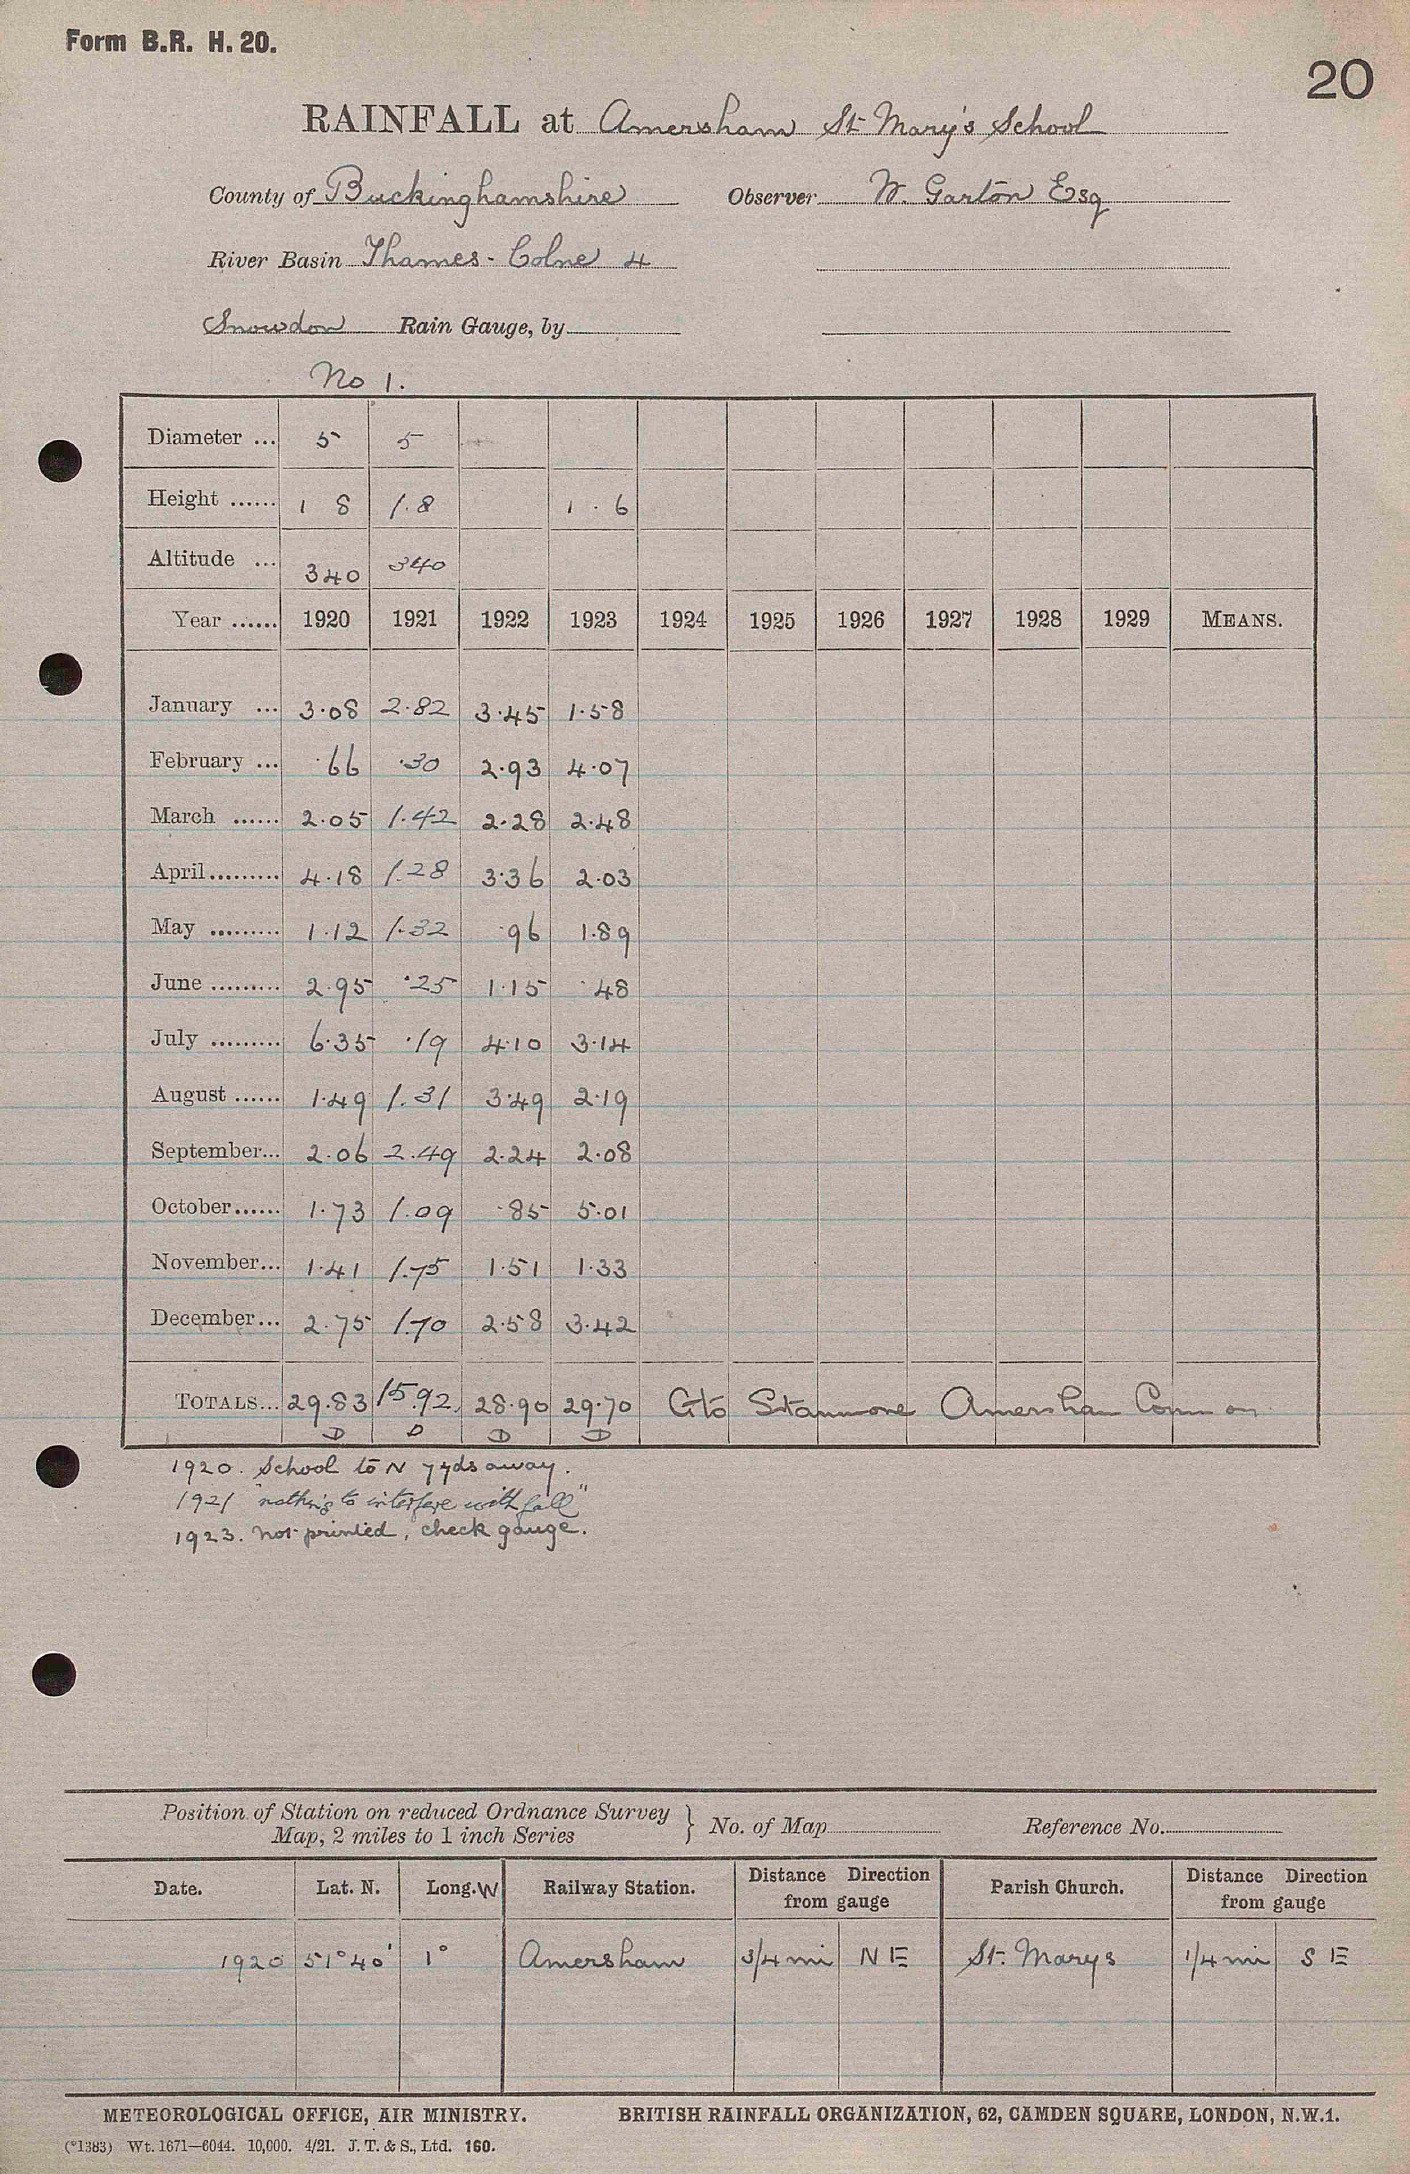 Form B.R. H. 20.
20
RAINFALL at Amersham St Mary's School
County of Buckinghamshire Observer W. Garton Esq
River Basin Thames - Colne 4
Snowdon Rain Gauge, by
No 1.
Diameter ... 5 5
Height ...... 1 8 1.8 1 . 6
Altitude ... 340 340
Year ...... 1920 1921 1922 1923 1924 1925 1926 1927 1928 1929 MEANS.
January ... 3.08 2.82 3.45 1.58
February ... .66 .30 2.93 4.07
March ...... 2.05 1.42 2.28 2.48
April ......... 4.18 1.28 3.36 2.03
May ......... 1.12 1.32 .96 1.89
June ......... 2.95 .25 1.15 .48
July ......... 6.35 .19 4.10 3.14
August ...... 1.49 1.31 3.49 2.19
September... 2.06 2.49 2.24 2.08
October...... 1.73 1.09 .85 5.01
November... 1.41 1.75 1.51 1.33
December... 2.75 1.70 2.58 3.42
TOTALS... 29.83 15.92 28.90 29.70 Gto Stanmore Amersham Common
D D D D
1920. School to N 7 yds away.
1921 "nothing to interfere with fall"
1923. not printed, check gauge.
Position of Station on reduced Ordnance Survey
Map, 2 miles to 1 inch Series } No. of Map Reference No.
Date. Lat. N. Long. W Railway Station. Distance Direction from gauge Parish Church. Distance Direction from gauge
1920 51° 40' 1° Amersham 3/4 mi N E St. Marys 1/4 mi S E
METEOROLOGICAL OFFICE, AIR MINISTRY. BRITISH RAINFALL ORGANIZATION, 62, CAMDEN SQUARE, LONDON, N.W.1.
(*1383) Wt. 1671—6044. 10,000. 4/21. J. T. & S., Ltd. 160.